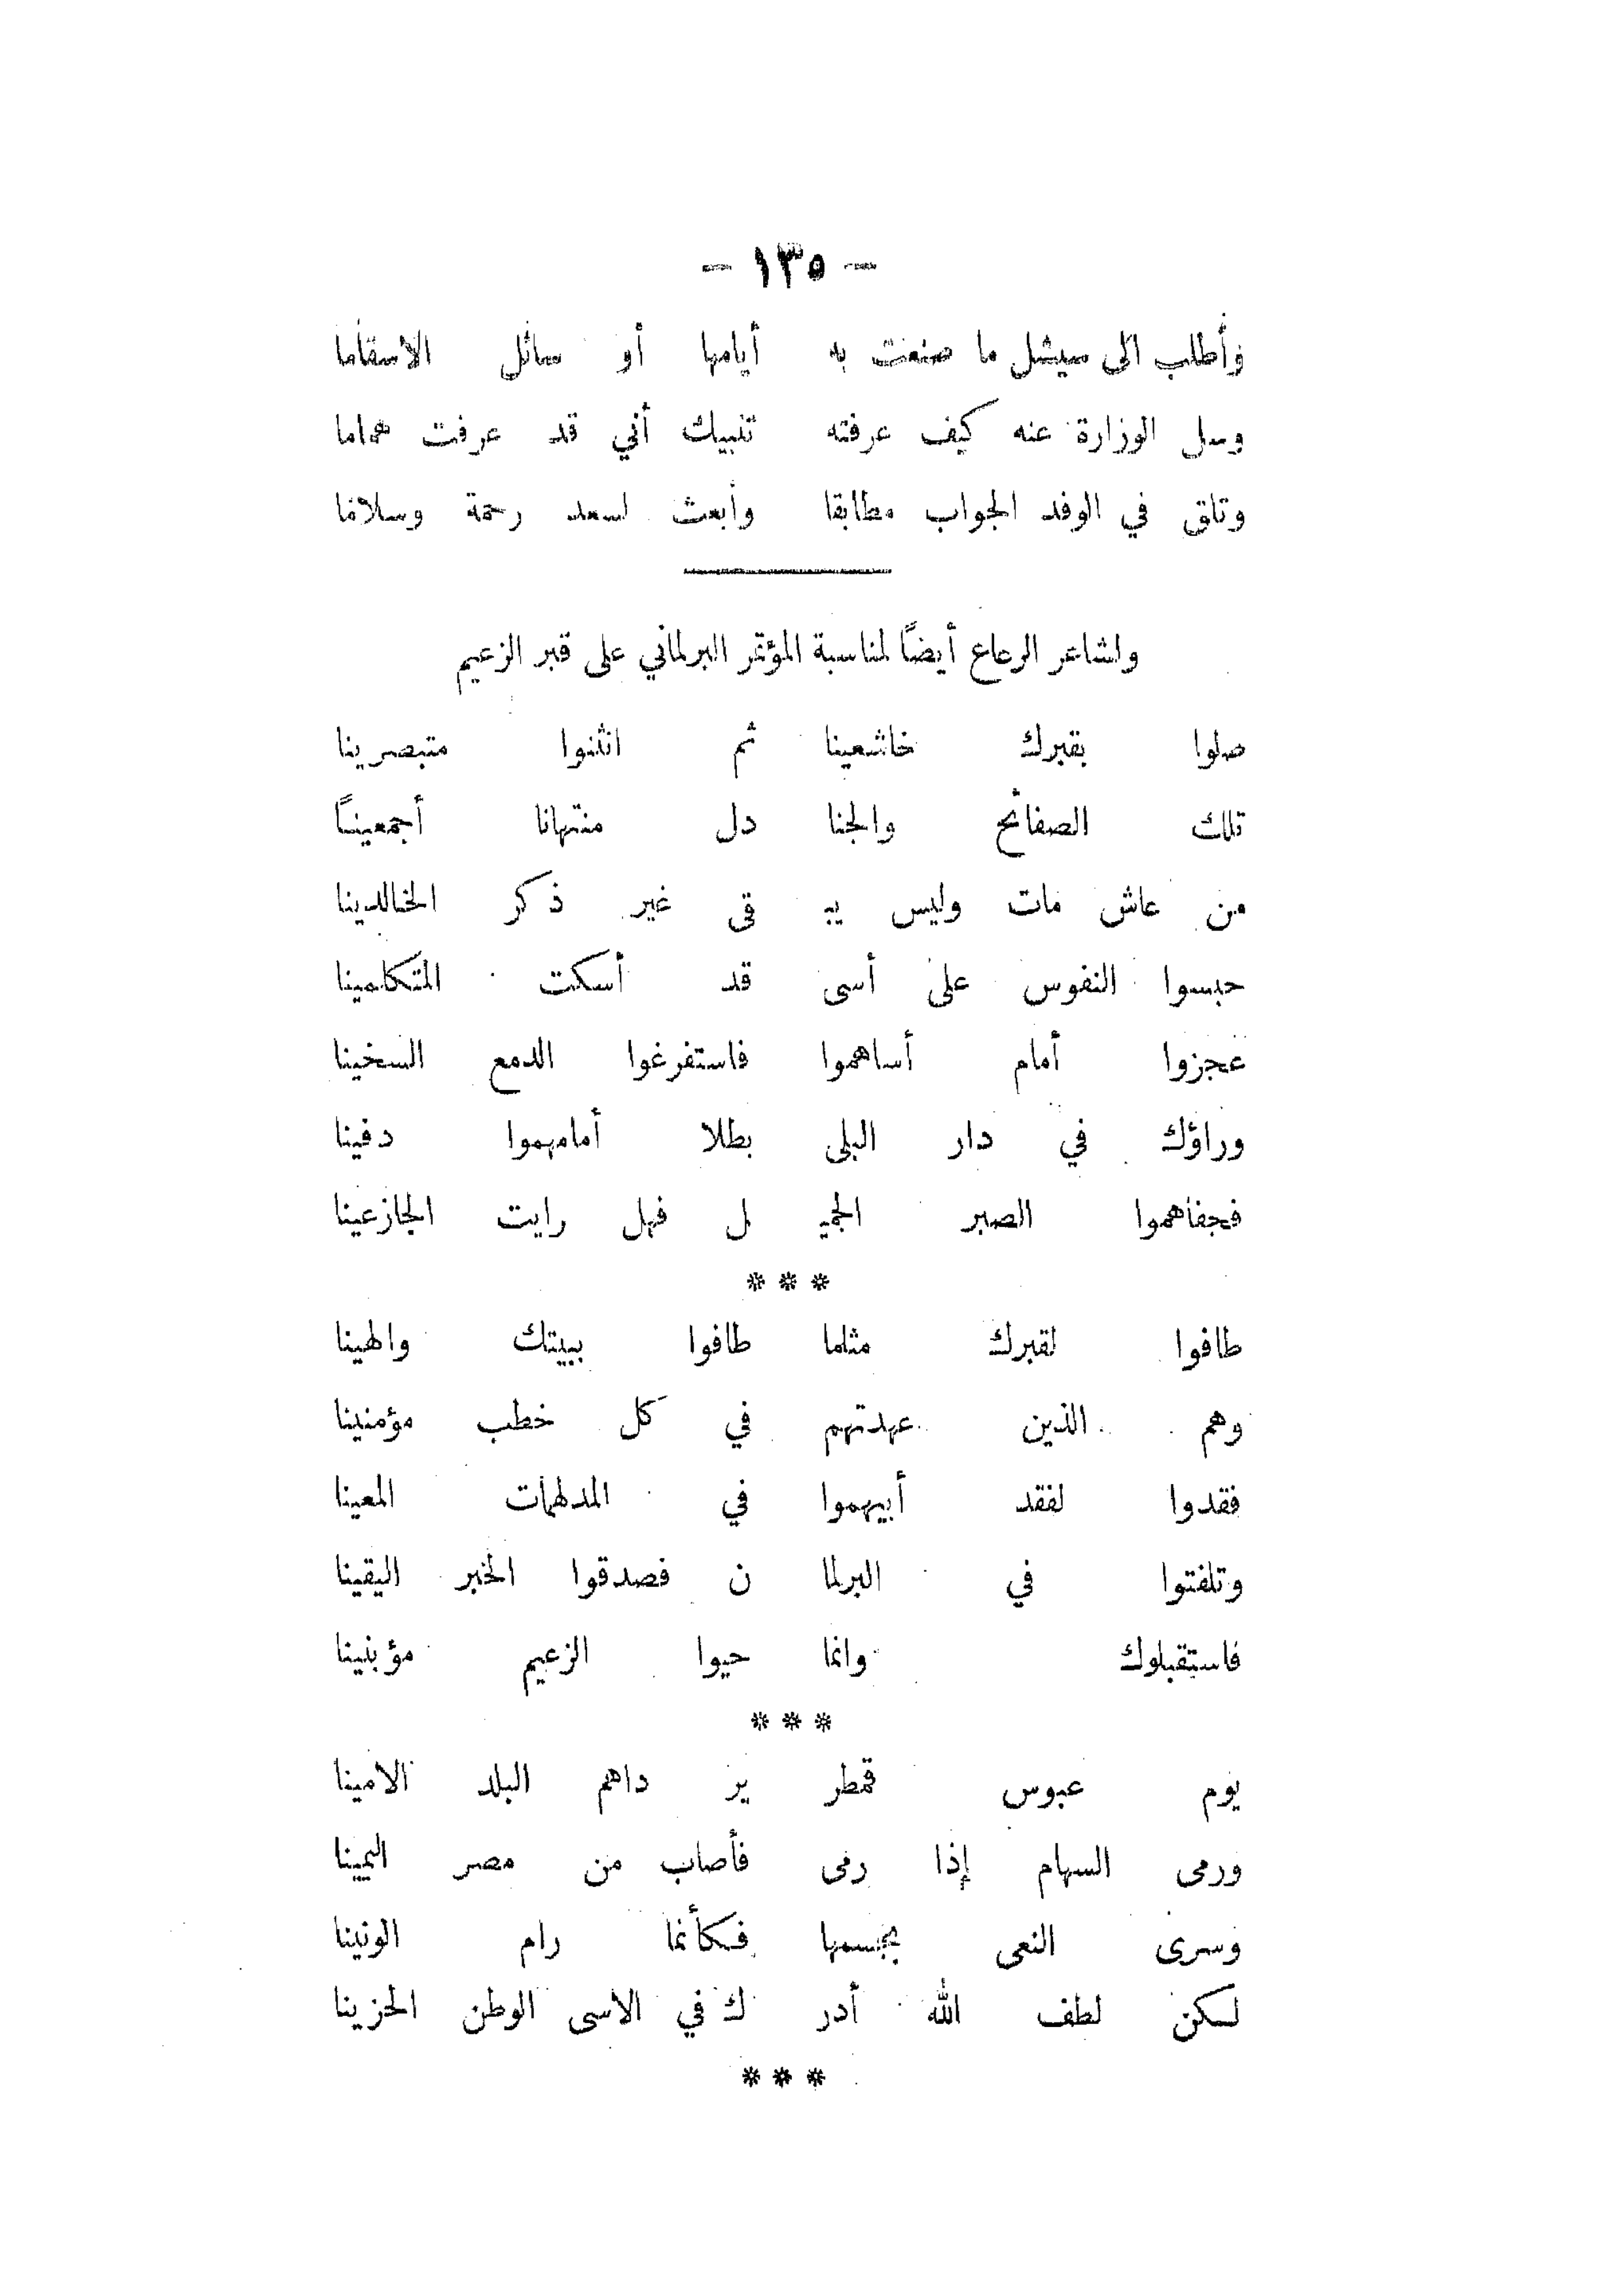 - ١٣٥ -
وأطلب الى سيشل ما صنعت به أيامها أو سائل الاسقاما
وسل الوزارة عنه كيف عرفته تنبيك أني قد عرفت هماما
وتلق في الوفد الجواب مطابقا وأبعث لسعد رحمة وسلاما
ولشاعر الرعاع أيضاً لمناسبة المؤتمر البرلماني على قبر الزعيم
صلوا بقبرك خاشعينا ثم انثنوا متبصرينا
تلك الصفائح والجنا دل منتهانا أجمعينا
من عاش مات وليس يبـ ـقى غير ذكر الخالدينا
حبسوا النفوس على أسى قد أسكت المتكلمينا
عجزوا أمام أساهموا فاستفرغوا الدمع السخينا
وراؤك في دار البلى بطلا أمامهموا دفينا
فجفاهموا الصبر الجميـ ـل فهل رايت الجازعينا
***
طافوا لقبرك مثلما طافوا ببيتك والهينا
وهم الذين عهدتهم في كل خطب مؤمنينا
فقدوا لفقد أبيهموا في المدلهمات المعينا
وتلفتوا في البرلما ن فصدقوا الخبر اليقينا
فاستقبلوك وانما حيوا الزعيم مؤبنينا
***
يوم عبوس قمطر ير داهم البلد الامينا
ورمى السهام إذا رمى فأصاب من مصر اليمينا
وسرى النعى بجسمها فكأنما رام الوتينا
لكن لطف الله أدر ك في الاسى الوطن الحزينا
***